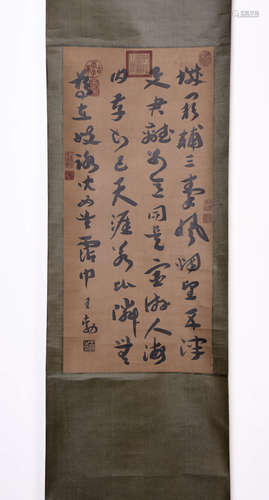 城闕輔三秦風烟望五津
與君離別意同是宦游人海
內存知己天涯若比隣無
為在歧路兒女共霑巾 王勃